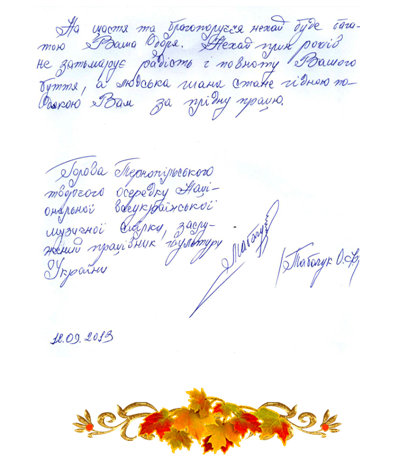 На щастя та благополуччя нехай буде бага-
тою Ваша Доля. Нехай плин років
не затьмарює радість і повноту Вашого
буття, а людська шана стане гідною по-
дякою Вам за плідну працю.
Голова Тернопільського
творчого осередку Наці-
ональної всеукраїнської
музичної спілки, заслу-
жений працівник культури
України
/Табачук О.
12.09.2013